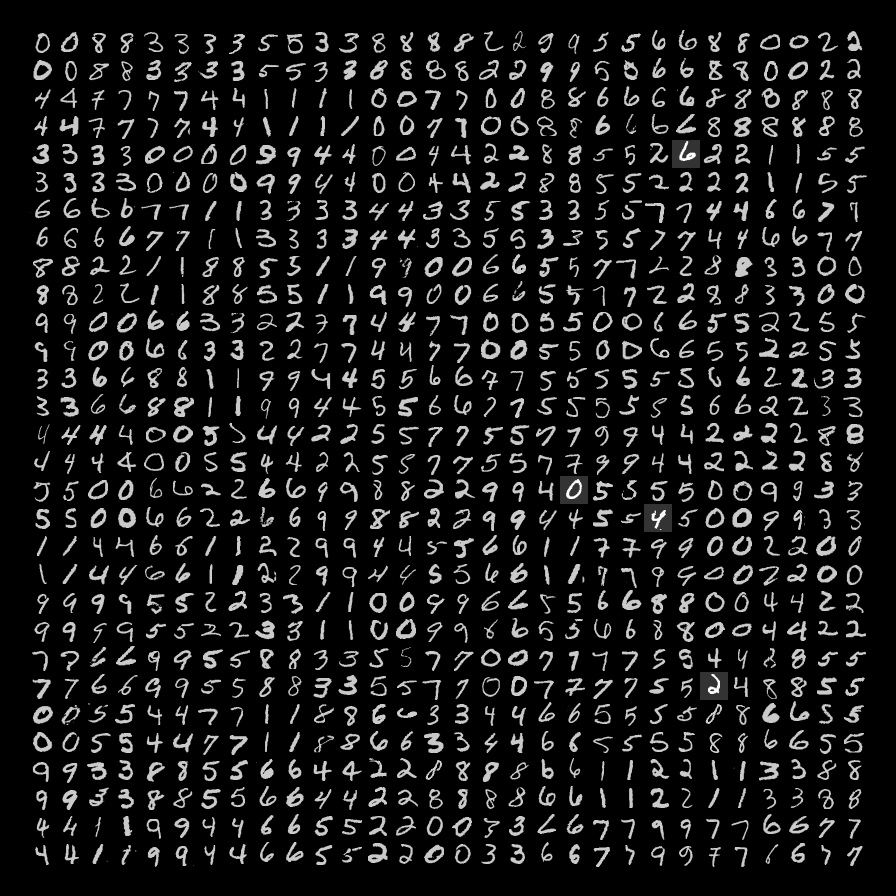 0 0 8 8 3 3 3 3 5 5 3 3 8 8 8 8 2 2 9 9 5 5 6 6 8 8 0 0 2 2
0 0 8 8 3 3 3 3 5 5 3 3 8 8 8 8 2 2 9 9 5 5 6 6 8 8 0 0 2 2
4 4 7 7 7 7 4 4 1 1 1 1 0 0 7 7 0 0 8 8 6 6 6 6 8 8 8 8 8 8
4 4 7 7 7 7 4 4 1 1 1 1 0 0 7 7 0 0 8 8 6 6 6 6 8 8 8 8 8 8
3 3 3 3 0 0 0 0 9 9 4 4 0 0 4 4 2 2 8 8 5 5 2 6 2 2 1 1 5 5
3 3 3 3 0 0 0 0 9 9 4 4 0 0 4 4 2 2 8 8 5 5 2 2 2 2 1 1 5 5
6 6 6 6 7 7 1 1 3 3 3 3 4 4 3 3 5 5 3 3 5 5 7 7 4 4 6 6 7 7
6 6 6 6 7 7 1 1 3 3 3 3 4 4 3 3 5 5 3 3 5 5 7 7 4 4 6 6 7 7
8 8 2 2 1 1 8 8 5 5 1 1 9 9 0 0 6 6 5 5 7 7 2 2 8 8 3 3 0 0
8 8 2 2 1 1 8 8 5 5 1 1 9 9 0 0 6 6 5 5 7 7 2 2 8 8 3 3 0 0
9 9 0 0 6 6 3 3 2 2 7 7 4 4 7 7 0 0 5 5 0 0 6 6 5 5 2 2 5 5
9 9 0 0 6 6 3 3 2 2 7 7 4 4 7 7 0 0 5 5 0 0 6 6 5 5 2 2 5 5
3 3 6 6 8 8 1 1 9 9 4 4 5 5 6 6 7 7 5 5 5 5 5 5 6 6 2 2 3 3
3 3 6 6 8 8 1 1 9 9 4 4 5 5 6 6 7 7 5 5 5 5 5 5 6 6 2 2 3 3
4 4 4 4 0 0 5 5 4 4 2 2 5 5 7 7 5 5 7 7 9 9 4 4 2 2 2 2 8 8
4 4 4 4 0 0 5 5 4 4 2 2 5 5 7 7 5 5 7 7 9 9 4 4 2 2 2 2 8 8
5 5 0 0 6 6 2 2 6 6 9 9 8 8 2 2 9 9 4 0 5 5 5 5 0 0 9 9 3 3
5 5 0 0 6 6 2 2 6 6 9 9 8 8 2 2 9 9 4 4 5 5 4 5 0 0 9 9 3 3
1 1 4 4 6 6 1 1 2 2 9 9 4 4 5 5 6 6 1 1 7 7 9 9 0 0 2 2 0 0
1 1 4 4 6 6 1 1 2 2 9 9 4 4 5 5 6 6 1 1 7 7 9 9 0 0 2 2 0 0
9 9 9 9 5 5 2 2 3 3 1 1 0 0 9 9 6 6 5 5 6 6 8 8 0 0 4 4 2 2
9 9 9 9 5 5 2 2 3 3 1 1 0 0 9 9 6 6 5 5 6 6 8 8 0 0 4 4 2 2
7 7 6 6 9 9 5 5 8 8 3 3 5 5 7 7 0 0 7 7 7 7 5 5 4 4 8 8 5 5
7 7 6 6 9 9 5 5 8 8 3 3 5 5 7 7 0 0 7 7 7 7 5 5 2 4 8 8 5 5
0 0 5 5 4 4 7 7 1 1 8 8 6 6 3 3 4 4 6 6 5 5 5 5 8 8 6 6 5 5
0 0 5 5 4 4 7 7 1 1 8 8 6 6 3 3 4 4 6 6 5 5 5 5 8 8 6 6 5 5
9 9 3 3 8 8 5 5 6 6 4 4 2 2 8 8 8 8 6 6 1 1 2 2 1 1 3 3 8 8
9 9 3 3 8 8 5 5 6 6 4 4 2 2 8 8 8 8 6 6 1 1 2 2 1 1 3 3 8 8
4 4 1 1 9 9 4 4 6 6 5 5 2 2 0 0 3 3 6 6 7 7 9 9 7 7 6 6 7 7
4 4 1 1 9 9 4 4 6 6 5 5 2 2 0 0 3 3 6 6 7 7 9 9 7 7 6 6 7 7